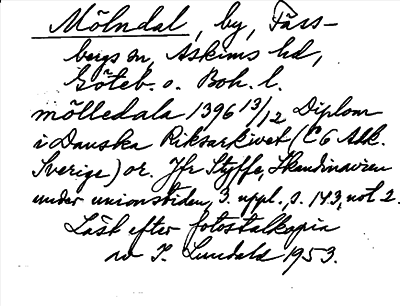 Mölndal, by, Fäss-
bergs sn, Askims hd,
Göteb. o. Boh. l.
mölledala 1396 13/12 Diplom
i Danska Riksarkivet (C6 Afl.
Sverige) or. Jfr Styffe, Skandinavien
under unionstiden, 3. uppl., s. 143, not 2.
Läst efter fotostatkopia
av I. Lundahl 1953.